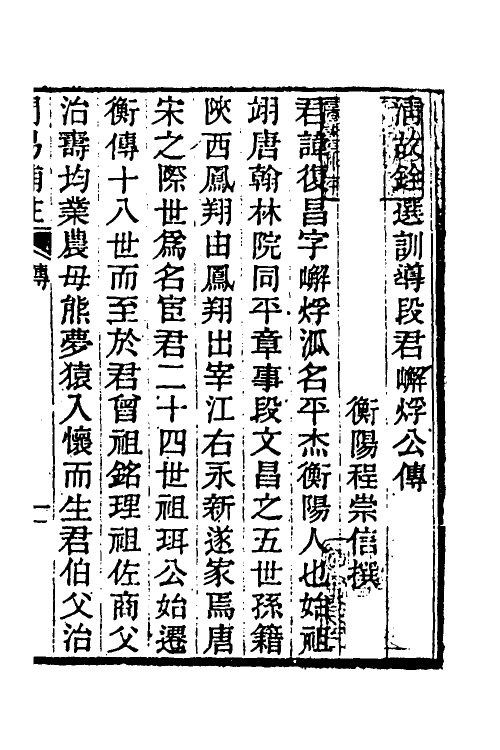 清故銓選訓導段君嶰烰公傳
衡陽程崇信撰
君諱復昌字嶰烰派名平杰衡陽人也始祖
翊唐翰林院同平章事段文昌之五世孫籍
陝西鳳翔由鳳翔出宰江右永新遂家焉唐
宋之際世爲名宦君二十四世祖珥公始遷
衡傳十八世而至於君曾祖銘理祖佐商父
治壽均業農母熊夢猿入懷而生君伯父治
周易補注
傳
一